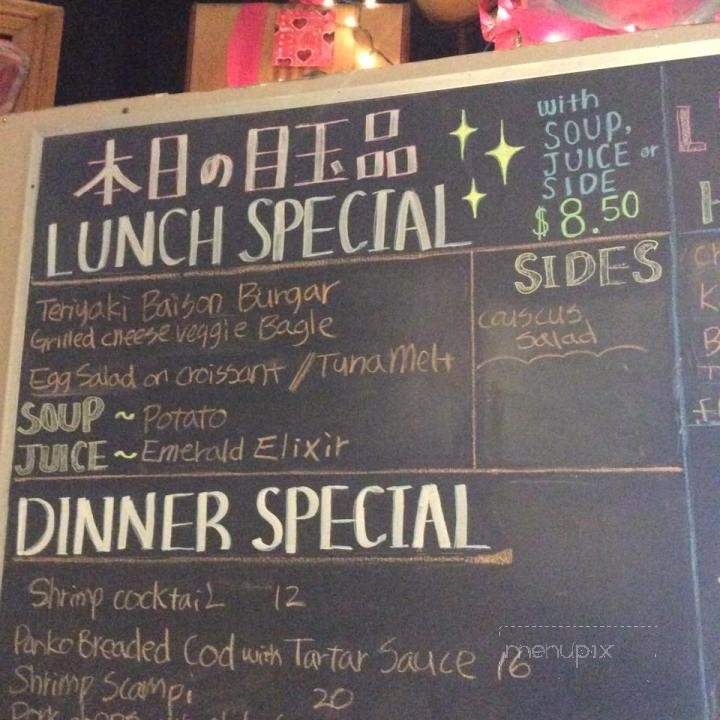 本日の目玉品
LUNCH SPECIAL
with
SOUP,
JUICE or
SIDE
$8.50
Teriyaki Baison Burgar
Grilled cheese veggie Bagle
Egg Salad on croissant / Tuna Melt
SOUP ~ Potato
JUICE ~ Emerald Elixir
SIDES
couscus
Salad
DINNER SPECIAL
Shrimp cocktail 12
Panko Breaded Cod with Tartar Sauce 16
Shrimp Scampi 20
menupix